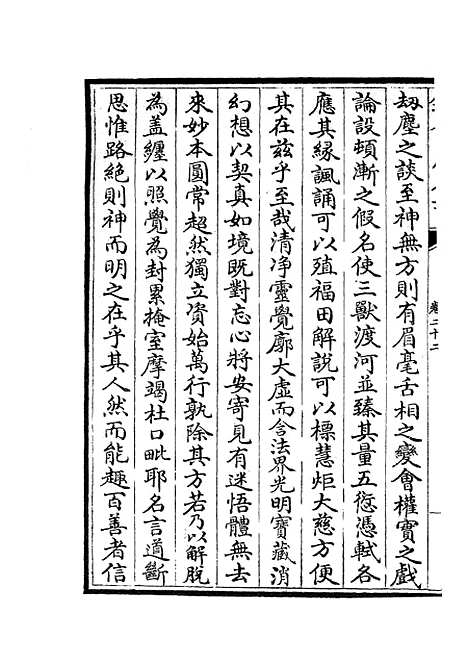 卷二十二
刼塵之談至神無方則有眉毫舌相之變會權實之戲
論設頓漸之假名使三獸渡河並臻其量五愆憑軾各
應其緣諷誦可以殖福田解說可以標慧炬大慈方便
其在兹乎至哉清净靈覺廓大虛而含法界光明寶藏消
幻想以契真如境既對忘心將安寄見有迷悟體無去
來妙本圓常超然獨立資始萬行孰除其方若乃以解脫
為盖纏以照覺為封累掩室摩竭杜口毗耶名言道斷
思惟路絕則神而明之在乎其人然而能趣百善者信